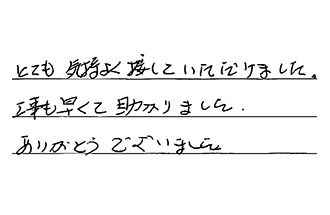 とても気持よく接していただけました。
工事も早くて助かりました.
ありがとうございました